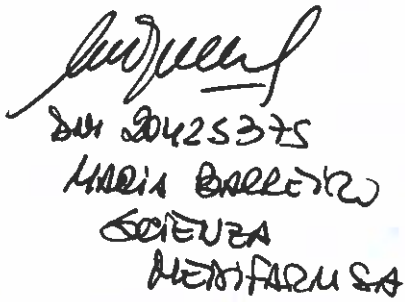 DNI 20425375
MARIA BARREIRO
SCIENZA
MEDIFARM SA